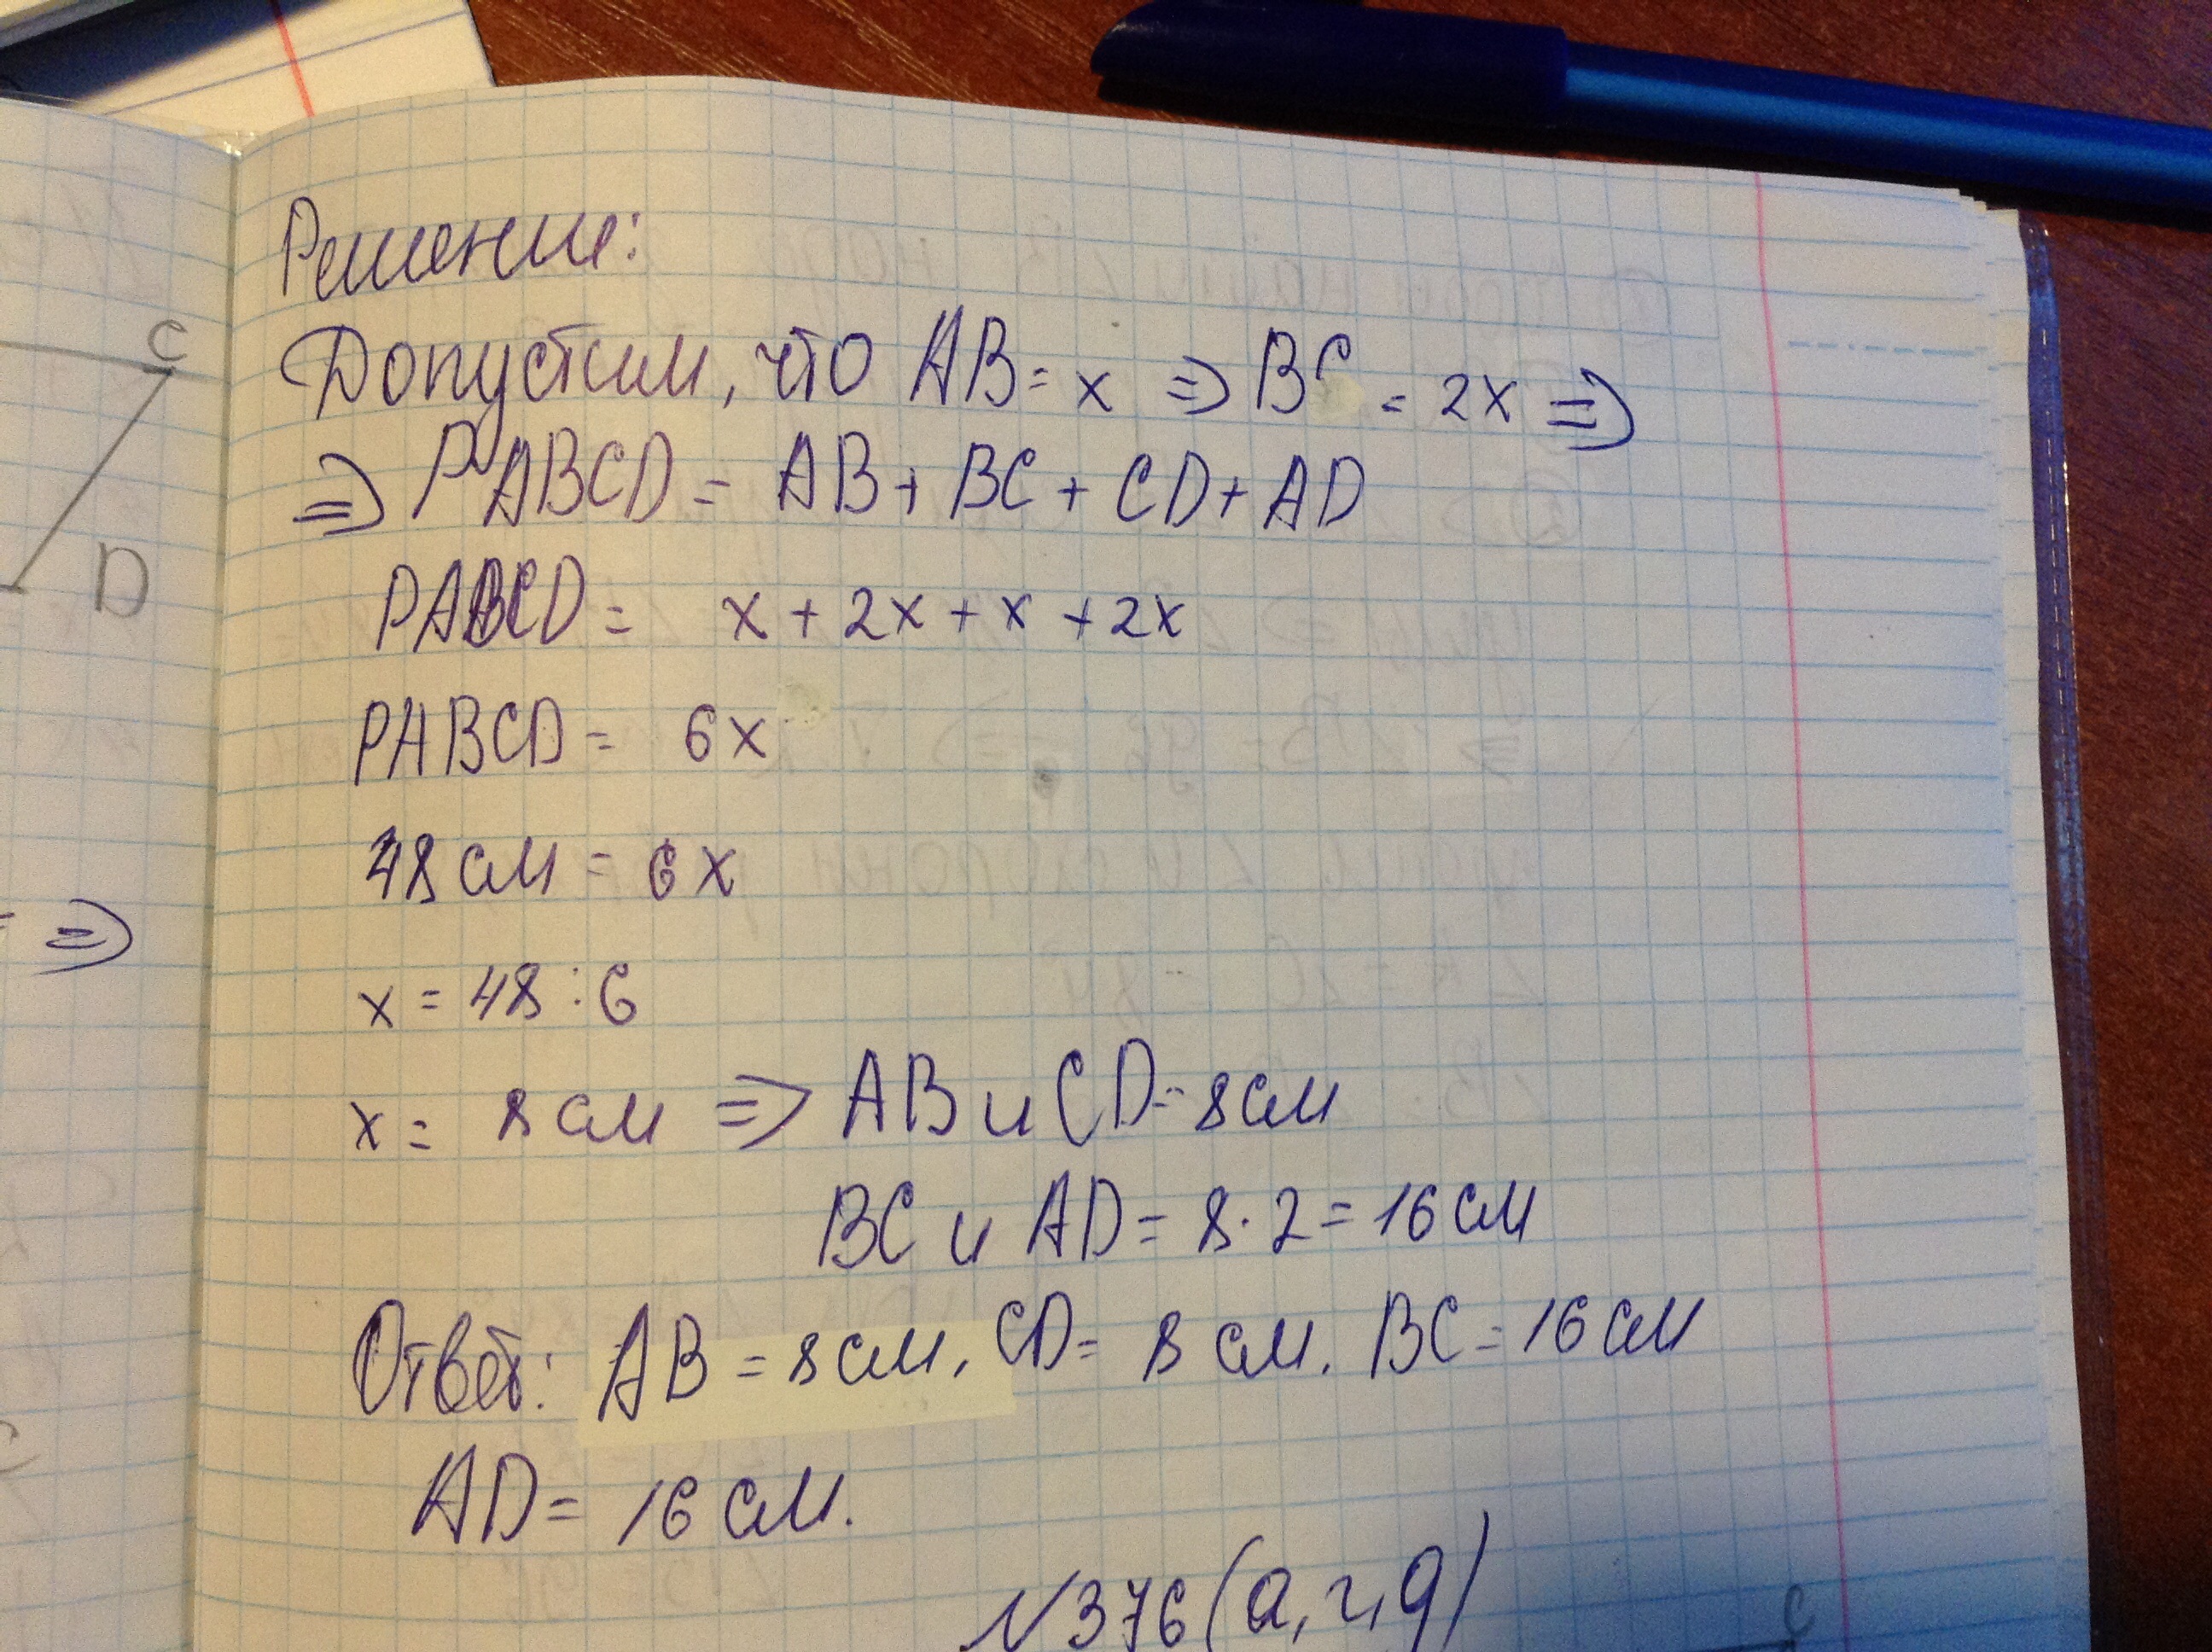 Решение:
Допустим, что AB = x => BC = 2x =>
=> PABCD = AB + BC + CD + AD
PABCD = x + 2x + x + 2x
PABCD = 6x
48 см = 6x
x = 48 : 6
x = 8 см => AB и CD = 8 см
BC и AD = 8 · 2 = 16 см
Ответ: AB = 8 см, CD = 8 см. BC = 16 см
AD = 16 см.
№376 (а, г, д)
C
D
=>
C